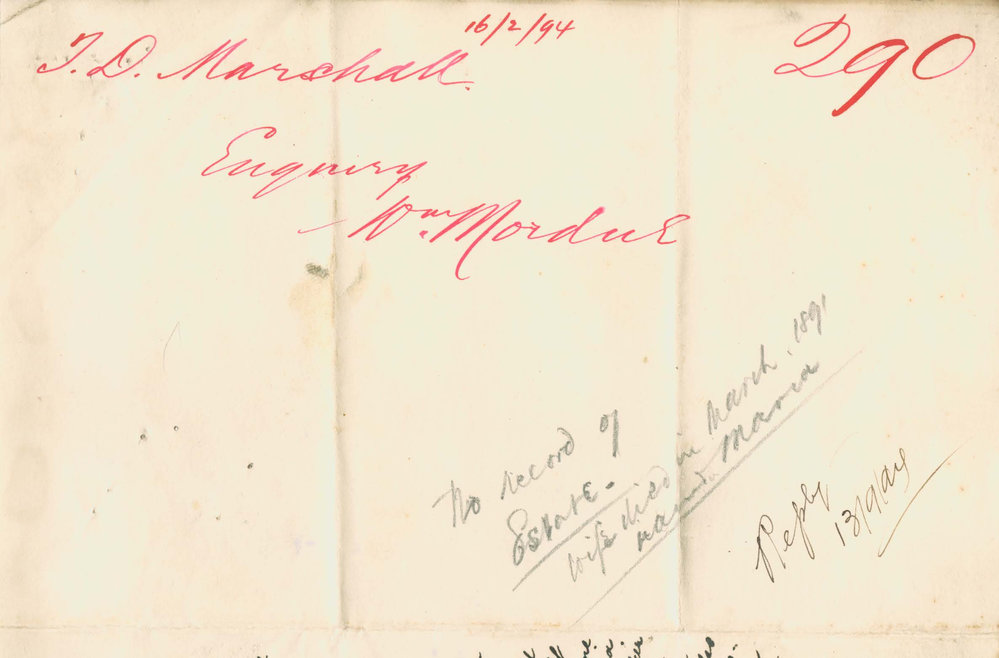 16/2/94
T. D. Marshall.
290
Enquiry
Wm. Mordue
No record of
Estate -
wife died in March, 1891
named Maria
Reply